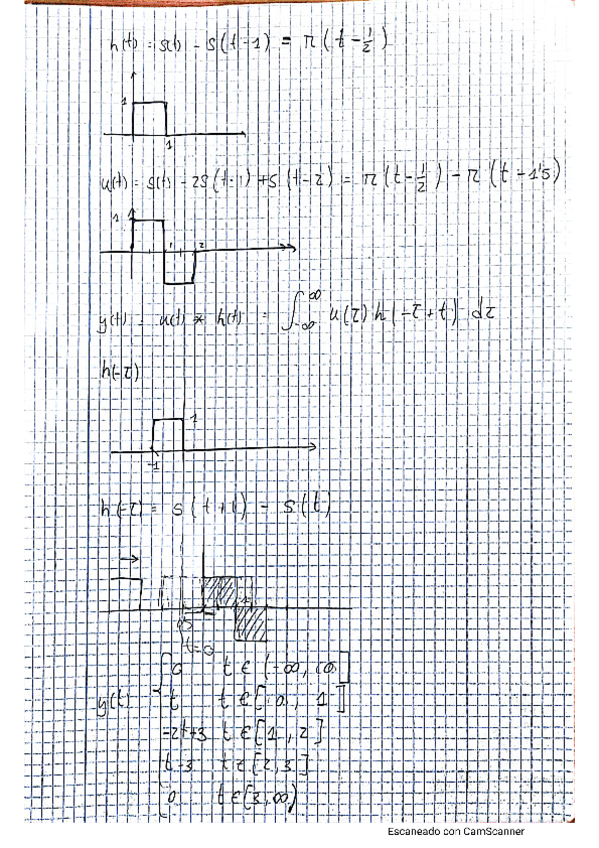 h(t) = s(t) - s(t-1) = π(t-1/2)
1
1
u(t) = s(t) - 2s(t-1) + s(t-2) = π(t-1/2) - π(t-1'5)
1
1 2
y(t) = u(t) * h(t) = ∫_{-∞}^{∞} u(τ) h(-τ+t) dτ
h(-τ)
1
-1
h(-τ) = s(t+1) - s(t)
t=0
0 t ∈ (-∞, 0]
y(t) = t t ∈ [0, 1]
-2t+3 t ∈ [1, 2]
t-3 t ∈ [2, 3]
0 t ∈ [3, ∞)
Escaneado con CamScanner